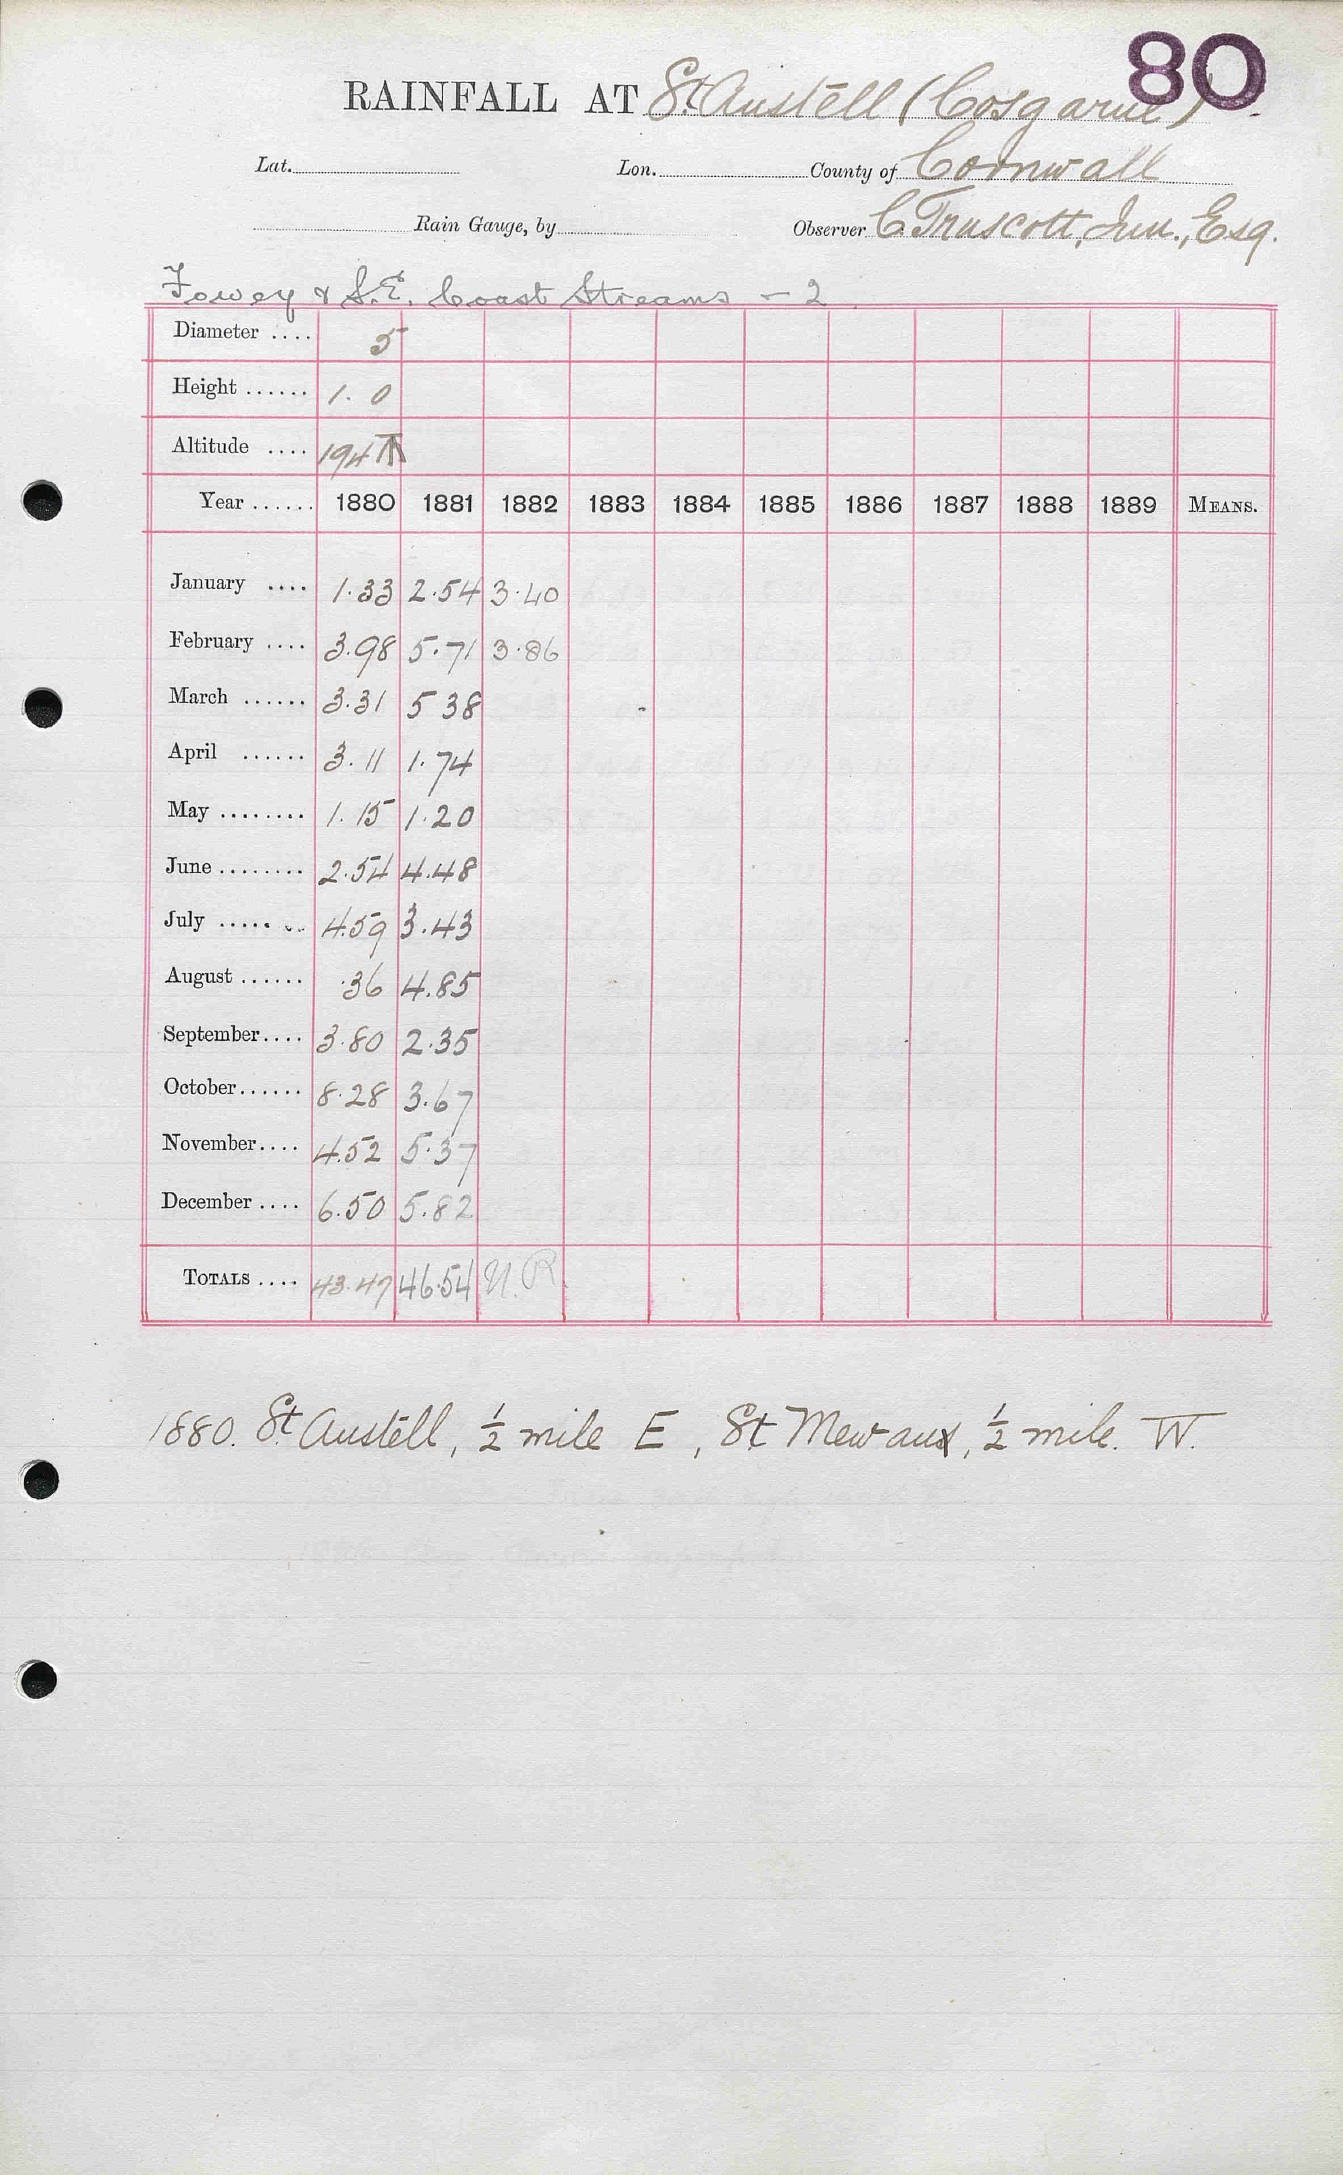 80
RAINFALL AT St. Austell (Cosgarne)
Lat. Lon. County of Cornwall
Rain Gauge, by Observer C. Truscott, Jun., Esq.
Fowey & S.E. Coast Streams - 2
Diameter .... 5
Height ...... 1. 0
Altitude .... 194 T
Year ...... 1880 1881 1882 1883 1884 1885 1886 1887 1888 1889 MEANS.
January .... 1.33 2.54 3.40
February .... 3.98 5.71 3.86
March ...... 3.31 5 38
April ...... 3.11 1.74
May ........ 1.15 1.20
June ........ 2.54 4.48
July ........ 4.59 3.43
August ...... .36 4.85
September .... 3.80 2.35
October ...... 8.28 3.67
November .... 4.52 5.37
December .... 6.50 5.82
TOTALS .... 43.47 46.54 N.R.
1880. St. Austell, ½ mile E, St. Mewaux, ½ mile. W.